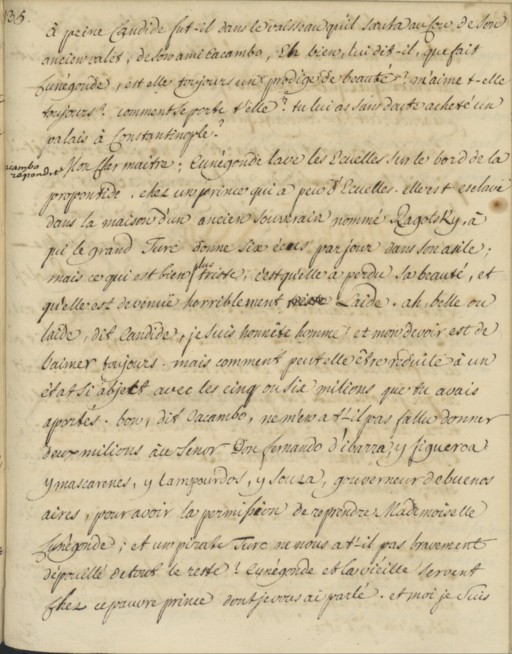 315
à peine Candide fut-il dans le vaisseau qu'il sauta au cou de son
ancien valet, de son ami Cacambo, Eh bien, lui dit-il, que fait
Cunégonde, est elle toujours un prodige de beauté? m'aime t-elle
toujours? comment se porte t'elle? tu lui as sans doute acheté un
palais à Constantinople?
Cacambo répond. Mon cher maitre; Cunégonde lave les Ecuelles sur le bord de la
propontide, chez un prince qui a peu d'Ecuelles. elle est esclave
dans la maison d'un ancien souverain nommé Ragotsky, à
qui le grand Turc donne six écus par jour dans son asile;
mais ce qui est bien plus triste, c'est qu'elle à perdu sa beauté, et
qu'elle est devenüe horriblement Laide. ah belle ou
laide, dit Candide, je suis honnête homme; et mon devoir est de
l'aimer toujours. mais comment peut elle être réduite à un
état si abject avec les cinq ou six milions que tu avais
aportés. bon, dit Cacambo, ne m'en a t'-il pas fallu donner
deux milions àu Senor Don fernando d'ibarra, y figueroa
y mascarenes, y Lampourdos, y Souza, gouverneur de buenos
aires, pour avoir la permission de reprendre Mademoiselle
Cunégonde; et un pirate Turc ne nous a t'-il pas bravement
dépouillé de tout le reste? Cunégonde et la vieille servent
chez ce pauvre prince dont je vous ai parlé. et moi je suis